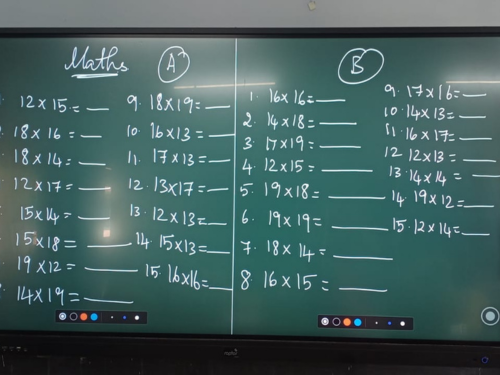 Maths A
12 x 15 = __
18 x 16 = __
18 x 14 = __
12 x 17 = __
15 x 14 = __
15 x 18 = __
19 x 12 = __
14 x 19 = __
9. 18 x 19 = __
10. 16 x 13 = __
11. 17 x 13 = __
12. 13 x 17 = __
13. 12 x 13 = __
14. 15 x 13 = __
15. 16 x 16 = __
B
1. 16 x 16 = __
2. 14 x 18 = __
3. 17 x 19 = __
4. 12 x 15 = __
5. 19 x 18 = __
6. 19 x 19 = __
7. 18 x 14 = __
8. 16 x 15 = __
9. 17 x 16 = __
10. 14 x 13 = __
11. 16 x 17 = __
12. 12 x 13 = __
13. 14 x 14 = __
14. 19 x 12 = __
15. 12 x 14 = __